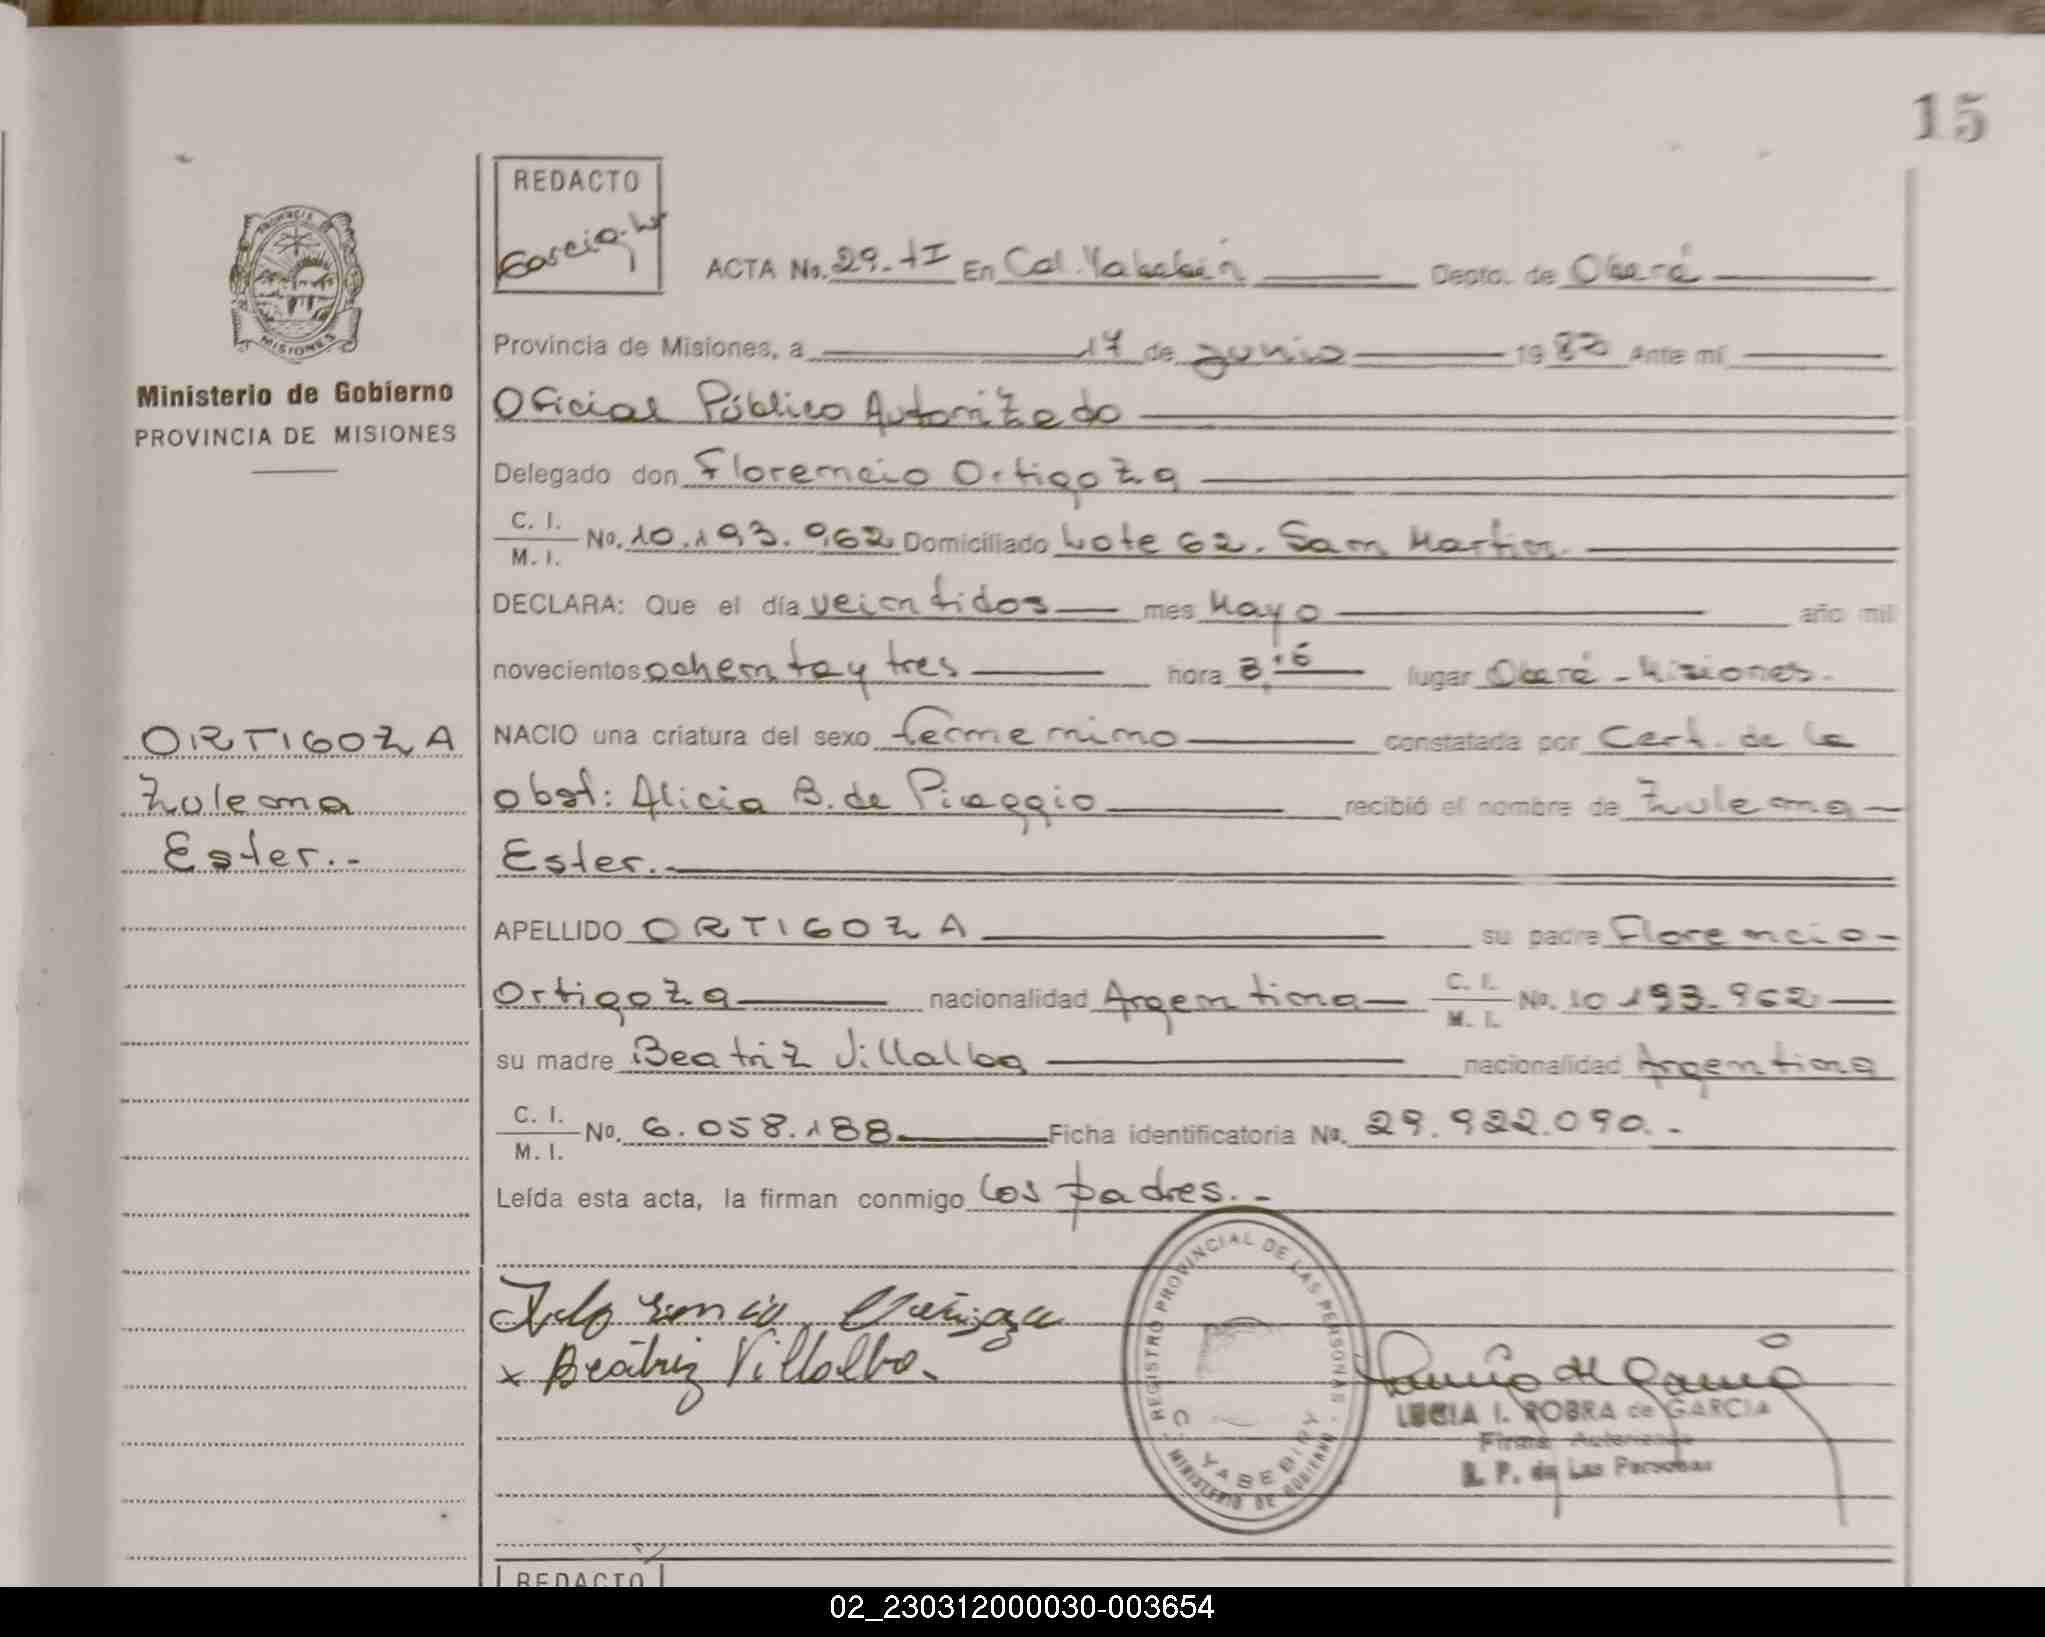 15
REDACTO
Garcia. L
PROVINCIA
MISIONES
ACTA No. 29-tI En Col. Yabebiri Depto. de Oberá
Provincia de Misiones, a 17 de Junio 1983 Ante mí
Ministerio de Gobierno
PROVINCIA DE MISIONES
Oficial Público Autorizado
Delegado don Florencio Ortigoza
C. I.
M. I. No. 10.193.962 Domiciliado Lote 62. San Martin.
DECLARA: Que el día veintidos mes Mayo año mil
novecientos ochenta y tres hora lugar Oberá - Misiones.
ORTIGOZA
Zulema
Ester.-
NACIO una criatura del sexo femenino constatada por Cert. de la
obst: Alicia B. de Piaggio recibió el nombre de Zulema
Ester.
APELLIDO ORTIGOZA su padre Florencio
Ortigoza nacionalidad Argentina C. I.
M. I. No. 10 193.962
su madre Beatriz Villalba nacionalidad Argentina
C. I.
M. I. No. 6.058.188 Ficha identificatoria No. 29.922.090.-
Leída esta acta, la firman conmigo los padres.-
x Beatriz Villalba.
REGISTRO PROVINCIAL DE LAS PERSONAS
MINISTERIO DE GOBIERNO
C. YABEBIRY
LUCIA I. ROBRA de GARCIA
Firma Autorizada
R. P. de Las Personas
REDACTO
02_230312000030-003654